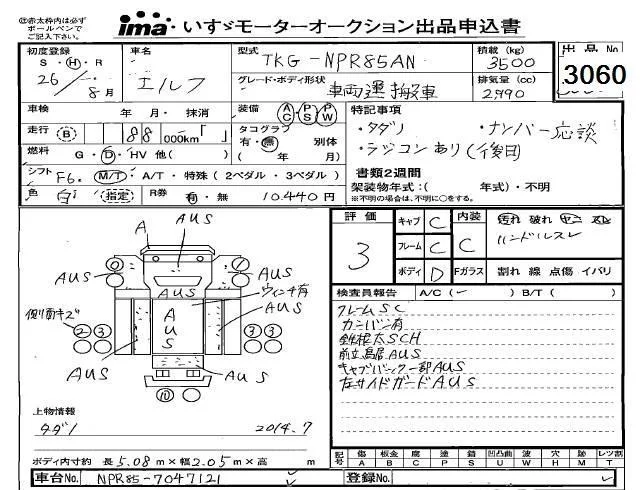 ※赤太枠内は必ず
ボールペンで
ご記入下さい。
ima・いすゞモーターオークション出品申込書
初度登録 S・H・R 26/8月
車名 エルフ
型式 TKG-NPR85AN
積載 (kg) 3500
出品No 3060
グレード・ボディ形状 車両運搬車
排気量 (cc) 2990
車検 年・月・抹消
装備 AC PS PW
特記事項
走行 B 88 000km「 」
タコグラフ 有・無 別体 ( 年 月)
・タダノ ・ナンバー応談
・ラジコンあり(後日)
燃料 G・D・HV 他( )
書類2週間
シフト F6. M/T・A/T・特殊(2ペダル・3ペダル)
架装物年式:( 年式)・不明
※不明の場合は、不明に○をする。
色 白 指定 R券 有・無 10.440円
評価 3
キャブ C 内装 C 汚れ 破れ ヤニ スレ
ハンドルスレ
フレーム C
ボディ D Fガラス 割れ 線 点傷 イバリ
検査員報告 A/C(✓) B/T( )
フレームSC
カンバン有
鉄板太SCH
前立鳥居AUS
キャブバック一部AUS
左サイドガードAUS
A AUS
0 1
AUS AUS
AUS
ウィンチ有
側面キズ
A
U
S
2 3 3 2
AUS AUS
AUS
10
上物情報
タダノ 2014.7
ボディ内寸約 長5.08m×幅2.05m×高 m
記号 傷 A 板金 B 腐 C 塗 P 錆 S 凹凸曲 U 波 W 穴 H 跡 M レツ割 T
車台No. NPR85-7047121
登録No.